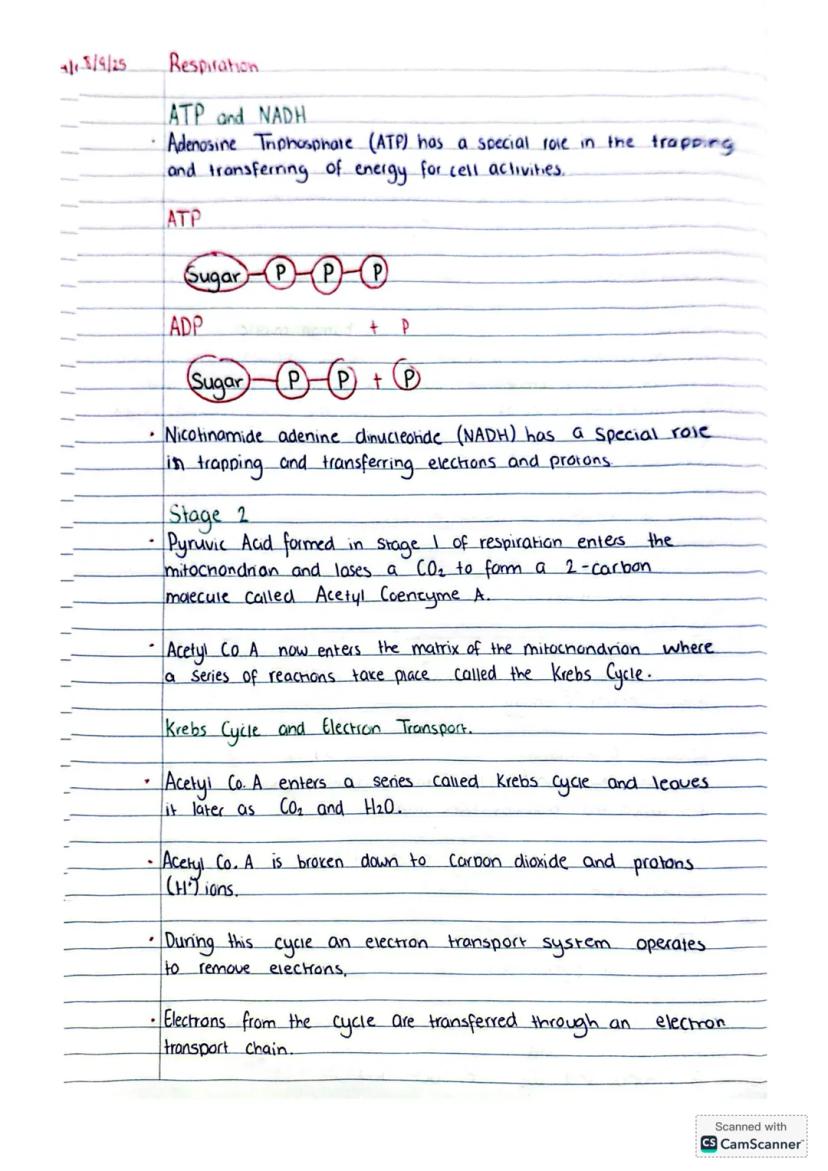 8/9/25 Respiration
ATP and NADH
· Adenosine Triphosphate (ATP) has a special role in the trapping
and transferring of energy for cell activities.
ATP
Sugar P P P
ADP + P
Sugar P P + P
· Nicotinamide adenine dinucleotide (NADH) has a special role
in trapping and transferring electrons and protons.
Stage 2
· Pyruvic Acid formed in stage 1 of respiration enters the
mitochondrion and loses a CO₂ to form a 2-carbon
molecule called Acetyl Coenzyme A.
· Acetyl Co A now enters the matrix of the mitochondrion where
a series of reactions take place called the Krebs Cycle.
Krebs Cycle and Electron Transport.
· Acetyl Co. A enters a series called Krebs Cycle and leaves
it later as CO₂ and H₂O.
· Acetyl Co. A is broken down to carbon dioxide and protons
(H⁺) ions.
· During this cycle an electron transport system operates
to remove electrons.
· Electrons from the cycle are transferred through an electron
transport chain.
Scanned with
CS CamScanner